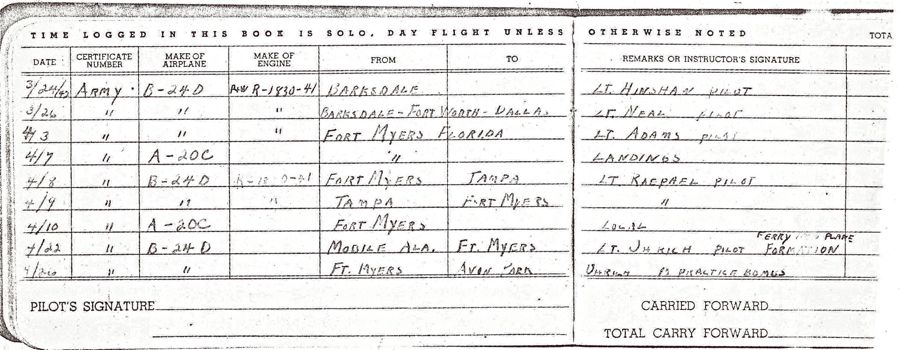 TIME LOGGED IN THIS BOOK IS SOLO, DAY FLIGHT UNLESS OTHERWISE NOTED TOTA
DATE CERTIFICATE NUMBER MAKE OF AIRPLANE MAKE OF ENGINE FROM TO REMARKS OR INSTRUCTOR'S SIGNATURE
3/24/42 ARMY B-24D P&W R-1830-41 BARKSDALE LT. HINSHAW PILOT
3/26 " " " BARKSDALE-FORT WORTH-DALLAS LT. NEAL PILOT
4/3 " " " FORT MYERS FLORIDA LT. ADAMS PILOT
4/7 " A-20C " LANDINGS
4/8 " B-24D FORT MYERS TAMPA LT. PILOT
4/9 " " " TAMPA FORT MYERS "
4/10 " A-20C FORT MYERS LOCAL
4/22 " B-24D MOBILE ALA. FT. MYERS LT. UHRICH PILOT FERRY PLANE FORMATION
4/26 " " FT. MYERS AVON PARK UHRICH PRACTICE BOMBS
PILOT'S SIGNATURE CARRIED FORWARD
TOTAL CARRY FORWARD